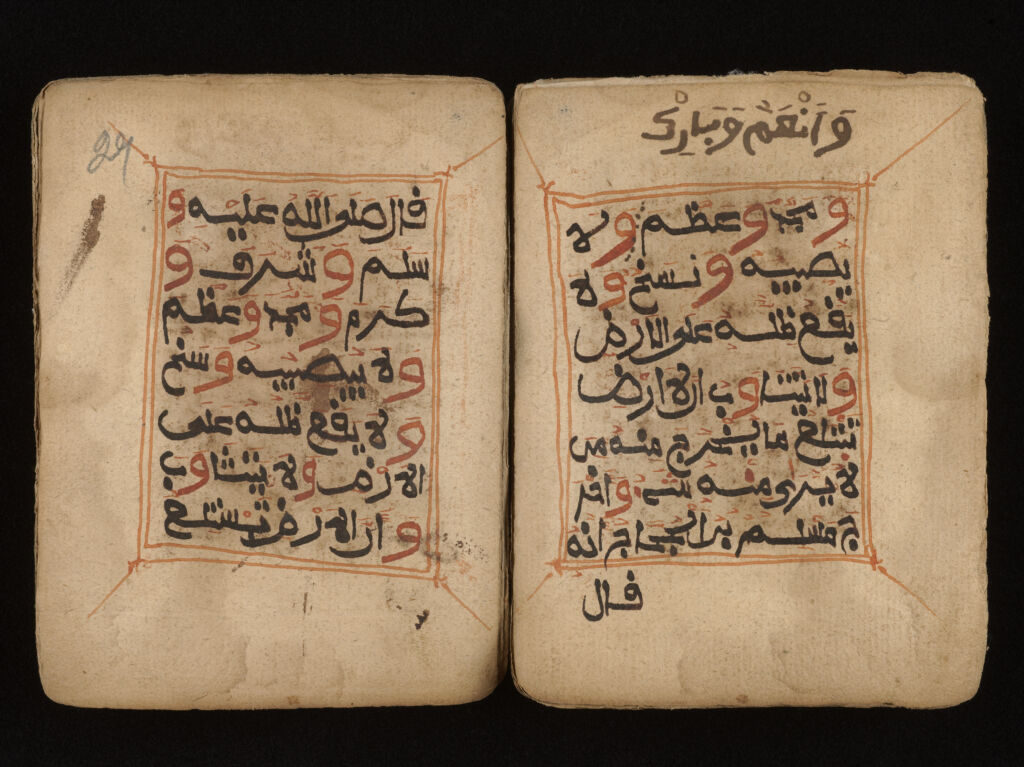 وَاَنْعَمْ وَبَارِكْ
و مجد و عظم و لا
يصيبه و نسخ و لا
يقع ظله على الارض
و لا يتثاوب ان الارض
تبتلع ما يخرج منه من
لا يرى منه شيء و اخر
ج مسلم انه
قال
قال صلى الله عليه و
سلم و شرف و
كرم و مجد و عظم
و لا يصيبه و سخ
و لا يقع ظله على
الارض و لا يتثاوب
و ان الارض تبتلع